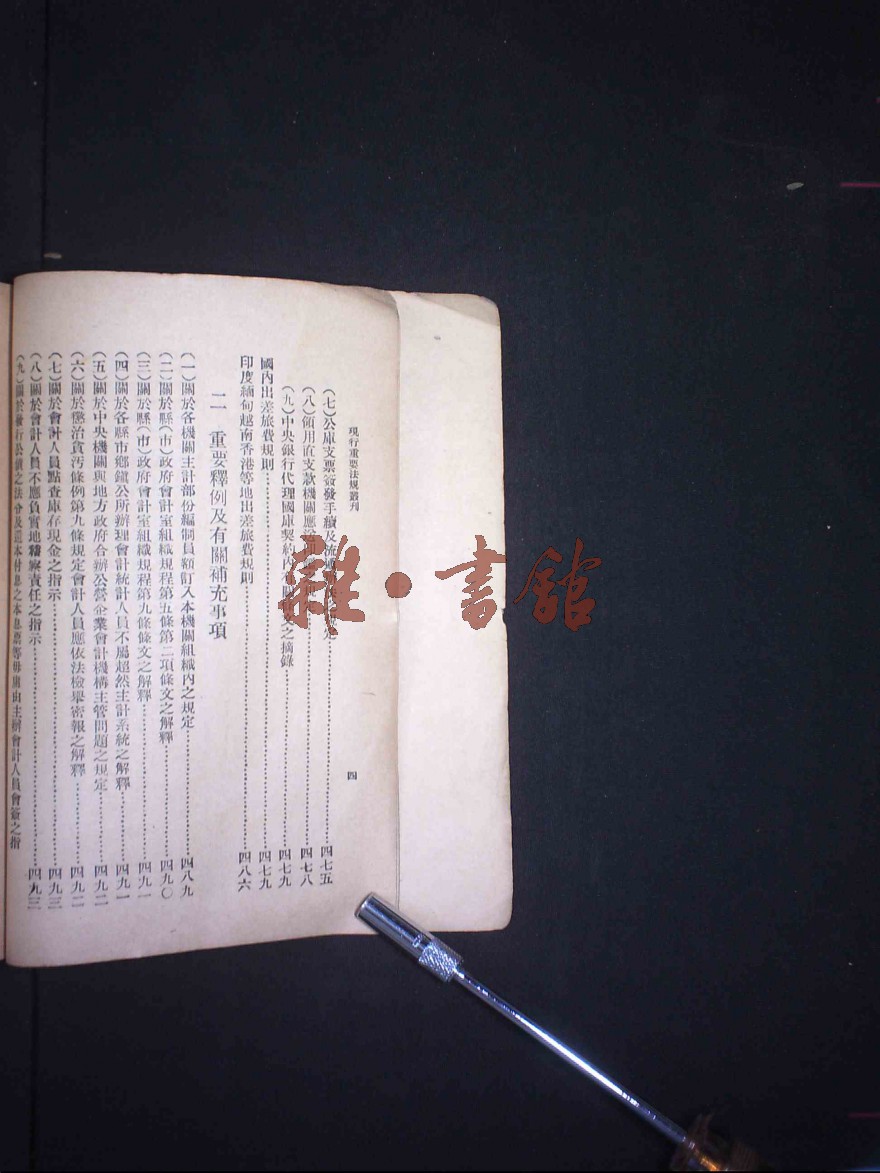 現行重要法規叢刊
四
(七)公庫支票簽發手續及流
四七五
(八)領用直支款機關應
四七八
(九)中央銀行代理國庫契約內
之摘錄
四七九
國內出差旅費規則
四七九
印度緬甸越南香港等地出差旅費規則
四八六
二 重要釋例及有關補充事項
(一)關於各機關主計部份編制員額訂入本機關組織內之規定
四八九
(二)關於縣(市)政府會計室組織規程第五條第二項條文之解釋
四九〇
(三)關於縣(市)政府會計室組織規程第九條條文之解釋
四九一
(四)關於各縣市鄉鎮公所辦理會計統計人員不屬超然主計系統之解釋
四九一
(五)關於中央機關與地方政府合辦公營企業會計機構主管問題之規定
四九二
(六)關於懲治貪污條例第九條規定會計人員應依法檢舉密報之解釋
四九二
(七)關於會計人員點查庫存現金之指示
四九三
(八)關於會計人員不應負實地稽察責任之指示
四九三
(九)關於發行公債之法令及還本付息之本息票等毋庸由主辦會計人員會簽之指
雜·書館